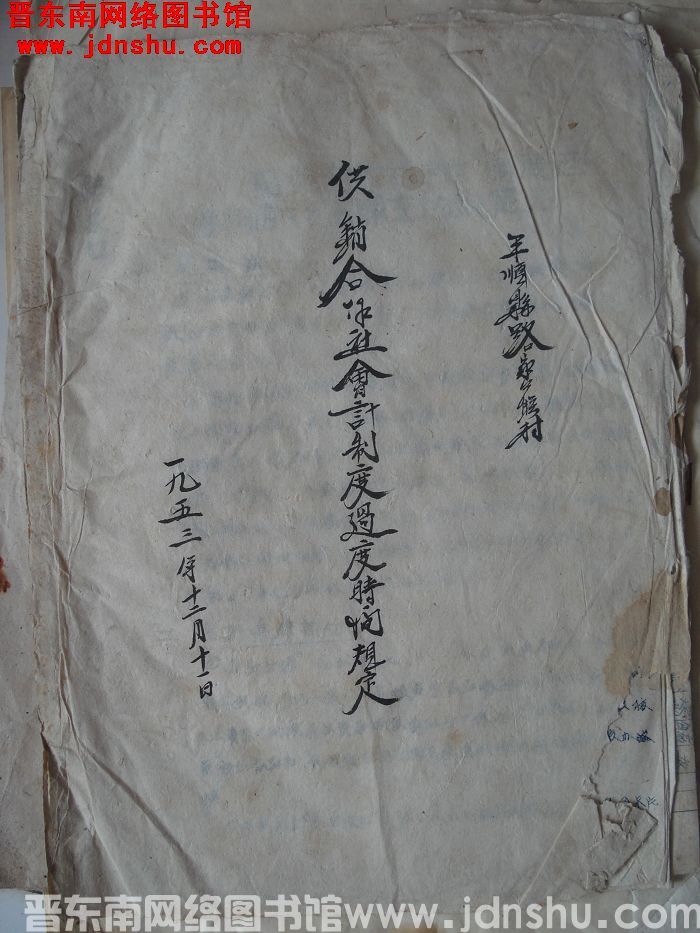 晋东南网络图书馆
www.jdnshu.com
平順縣路家口村
供銷合作社會計制度過度時间規定
一九五三年十二月十一日
晋东南网络图书馆 www.jdnshu.com